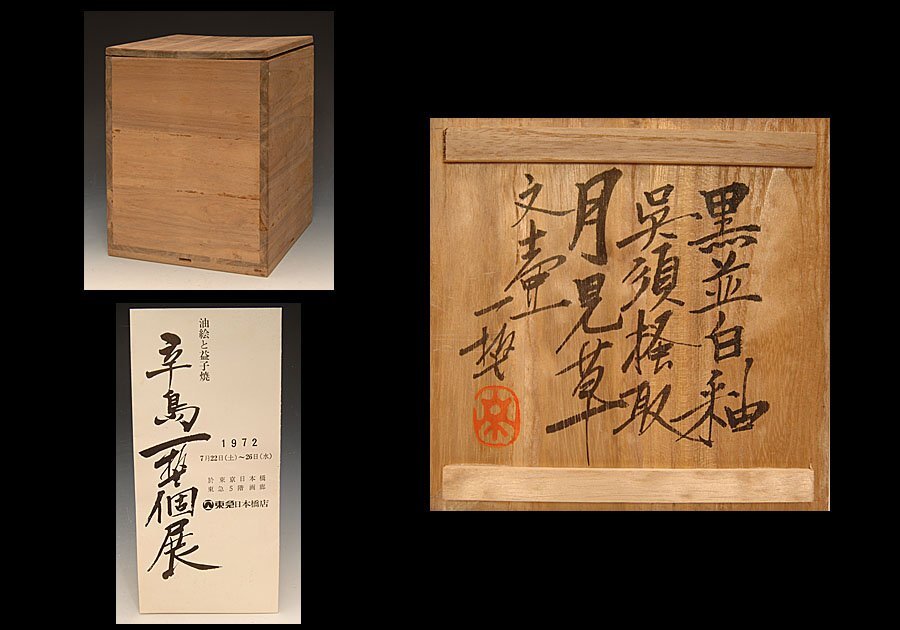 油絵と益子焼
辛島一誌個展
1972
7月22日(土)〜26日(水)
於東京日本橋
東急5階画廊
東急日本橋店
黒並白釉
呉須掻取
月見草
文壷